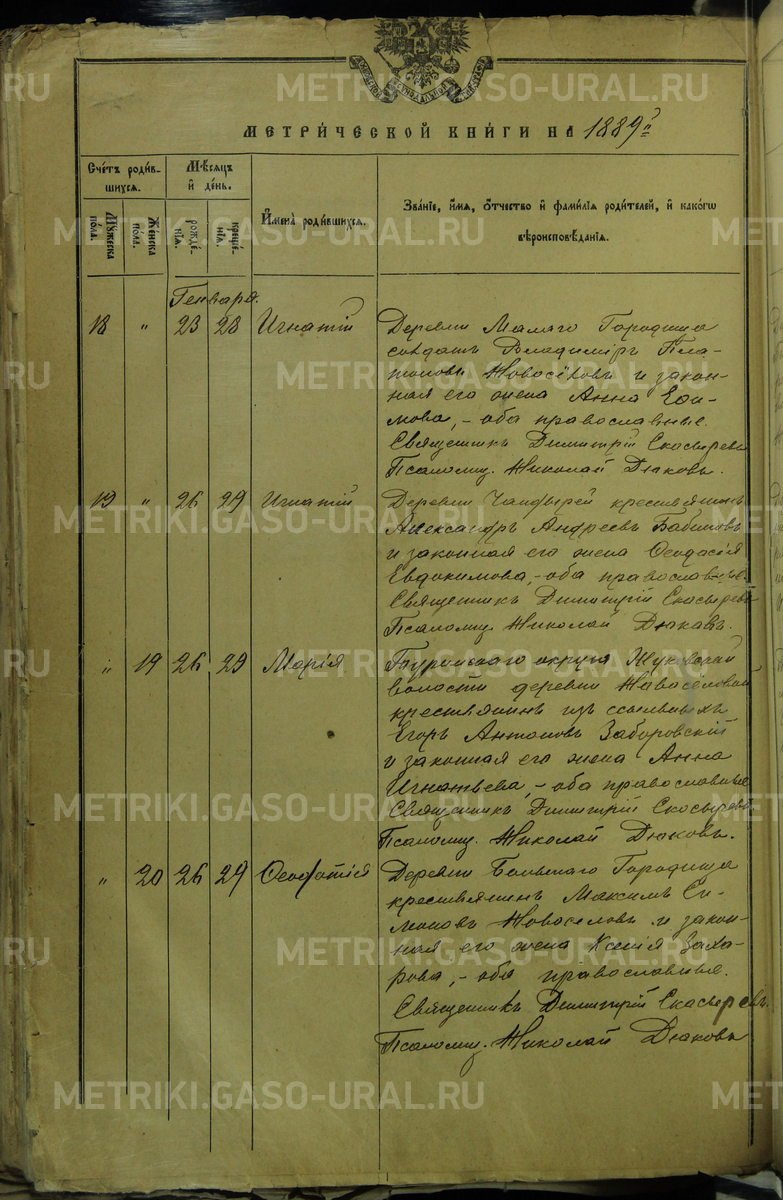 МЕТРИЧЕСКОЙ КНИГИ НА 1889 г.
Счетъ родив-
шихся.
Мѣсяцъ
и день.
Имена родившихся.
Званіе, имя, отчество и фамилія родителей, и какогѡ
вѣроисповѣданія.
Мужеска
пола.
Женска
пола.
рожде-
нія.
креще-
нія.
Генваря.
18 " 23 28 Игнатій
Деревни Малаго Городища
солдатъ Владиміръ Пла-
тоновъ Новосёловъ и закон-
ная его жена Анна Ефи-
мова, - оба православные.
Священникъ Димитрій Скосыревъ
Псаломщ. Николай Дюковъ.
19 " 26 29 Игнатій
Деревни крестьянинъ
Александръ Андреевъ
и законная его жена Ѳеодосія
Евдокимова, - оба православные.
Священникъ Димитрій Скосыревъ
Псаломщ. Николай Дюковъ.
" 19 26 29 Марія
округа
волости деревни Новосёловой
крестьянинъ изъ ссыльныхъ
Егоръ Антоновъ Заборовскій
и законная его жена Анна
Игнатьева, - оба православные
Священникъ Димитрій Скосыревъ.
Псаломщ. Николай Дюковъ.
" 20 26 29 Ѳеофотія
Деревни Большаго Городища
крестьянинъ Максимъ Си-
моновъ Новоселовъ и закон-
ная его жена Ксенія Заха-
рова, - оба православные.
Священникъ Димитрій Скосыревъ.
Псаломщ. Николай Дюковъ
METRIKI.GASO-URAL.RU